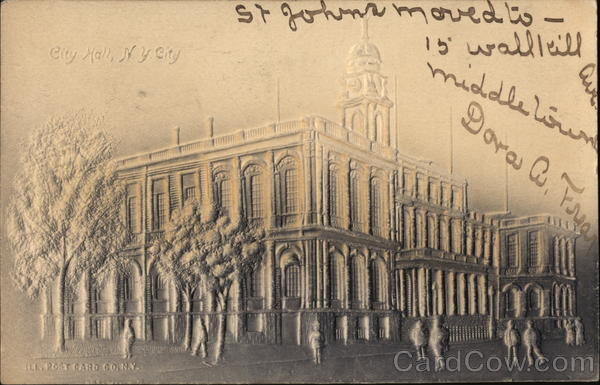 St Johns moved to —
15 wallkill
Ave
Middletown
Dora A.
City Hall, N.Y. City
ILL. POST CARD CO. N.Y.
CardCow.com